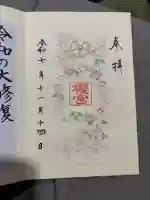 奉拝
櫻宮
令和七年十一月十四日
令和の大修復